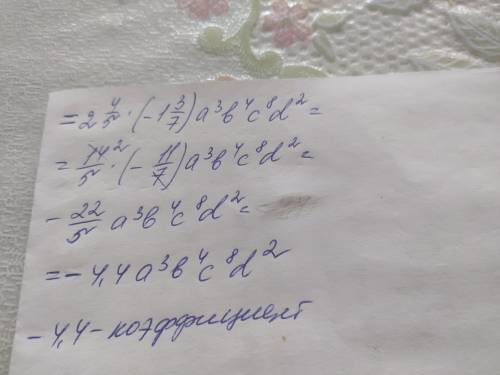 = 2 4/5 · (-1 3/7) a³b⁴c⁸d² =
= 14²/5 · (- 11/7) a³b⁴c⁸d² =
- 22/5 a³b⁴c⁸d² =
= - 4,4 a³b⁴c⁸d²
- 4,4 - коэффициент